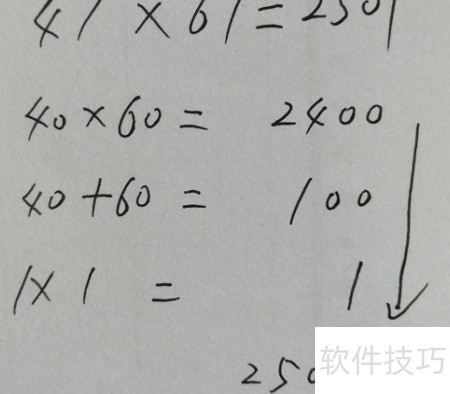 41 × 61 = 2501
40 × 60 = 2400
40 + 60 = 100
1 × 1 = 1
250
软件技巧